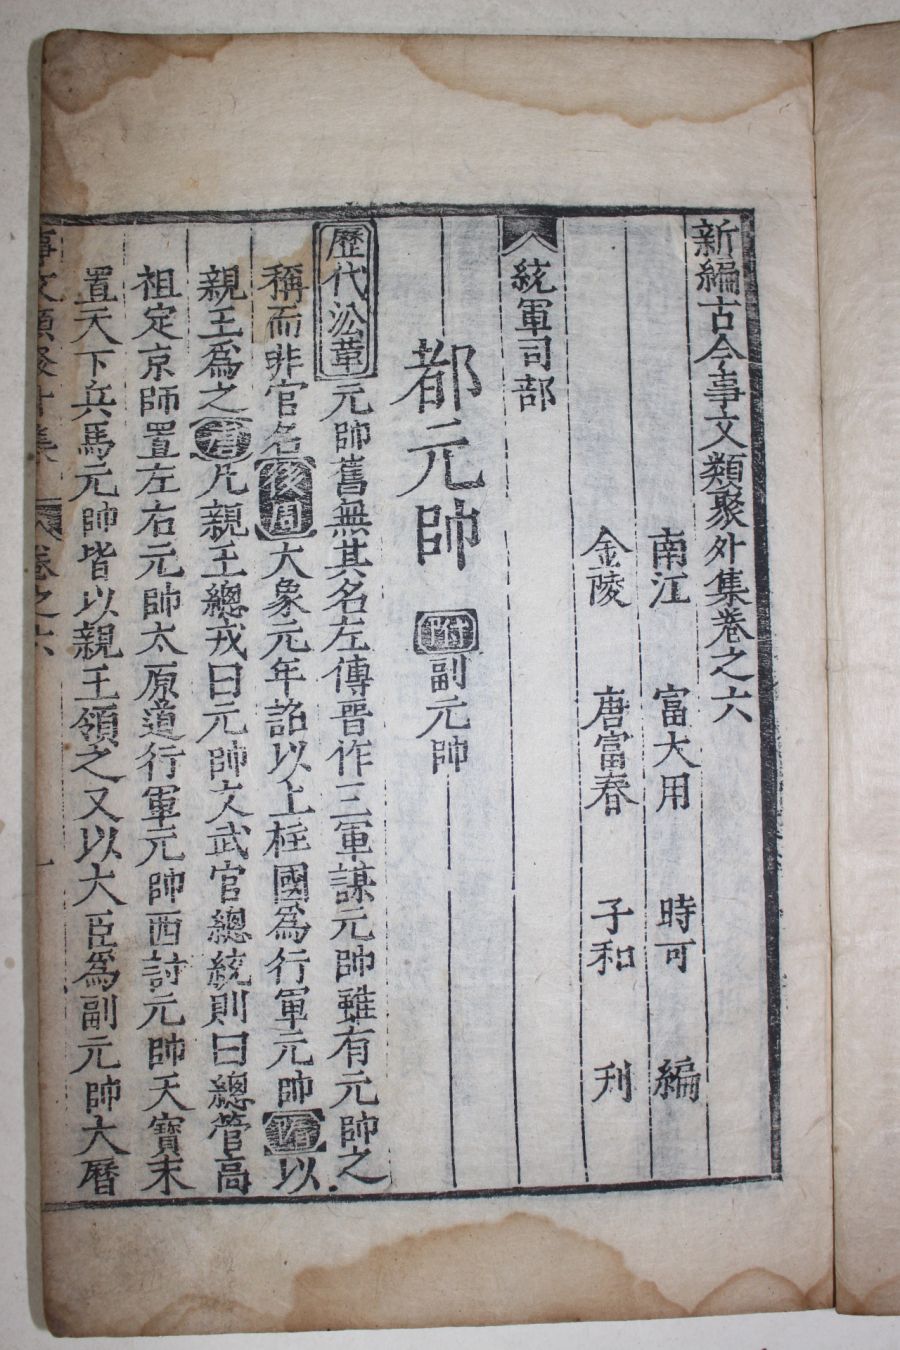 新編古今事文類聚外集卷之六
南江 富大用 時可 編
金陵 唐富春 子和 刋
統軍司部
都元帥 附副元帥
歷代沿革元帥舊無其名左傳晉作三軍謀元帥雖有元帥之
稱而非官名後周大象元年詔以上柱國為行軍元帥隋以
親王爲之唐凡親王總戎曰元帥文武官總統則曰總管高
祖定京師置左右元帥太原道行軍元帥西討元帥天寶末
置天下兵馬元帥皆以親王領之又以大臣爲副元帥大曆
事文類聚外集 卷之六 一